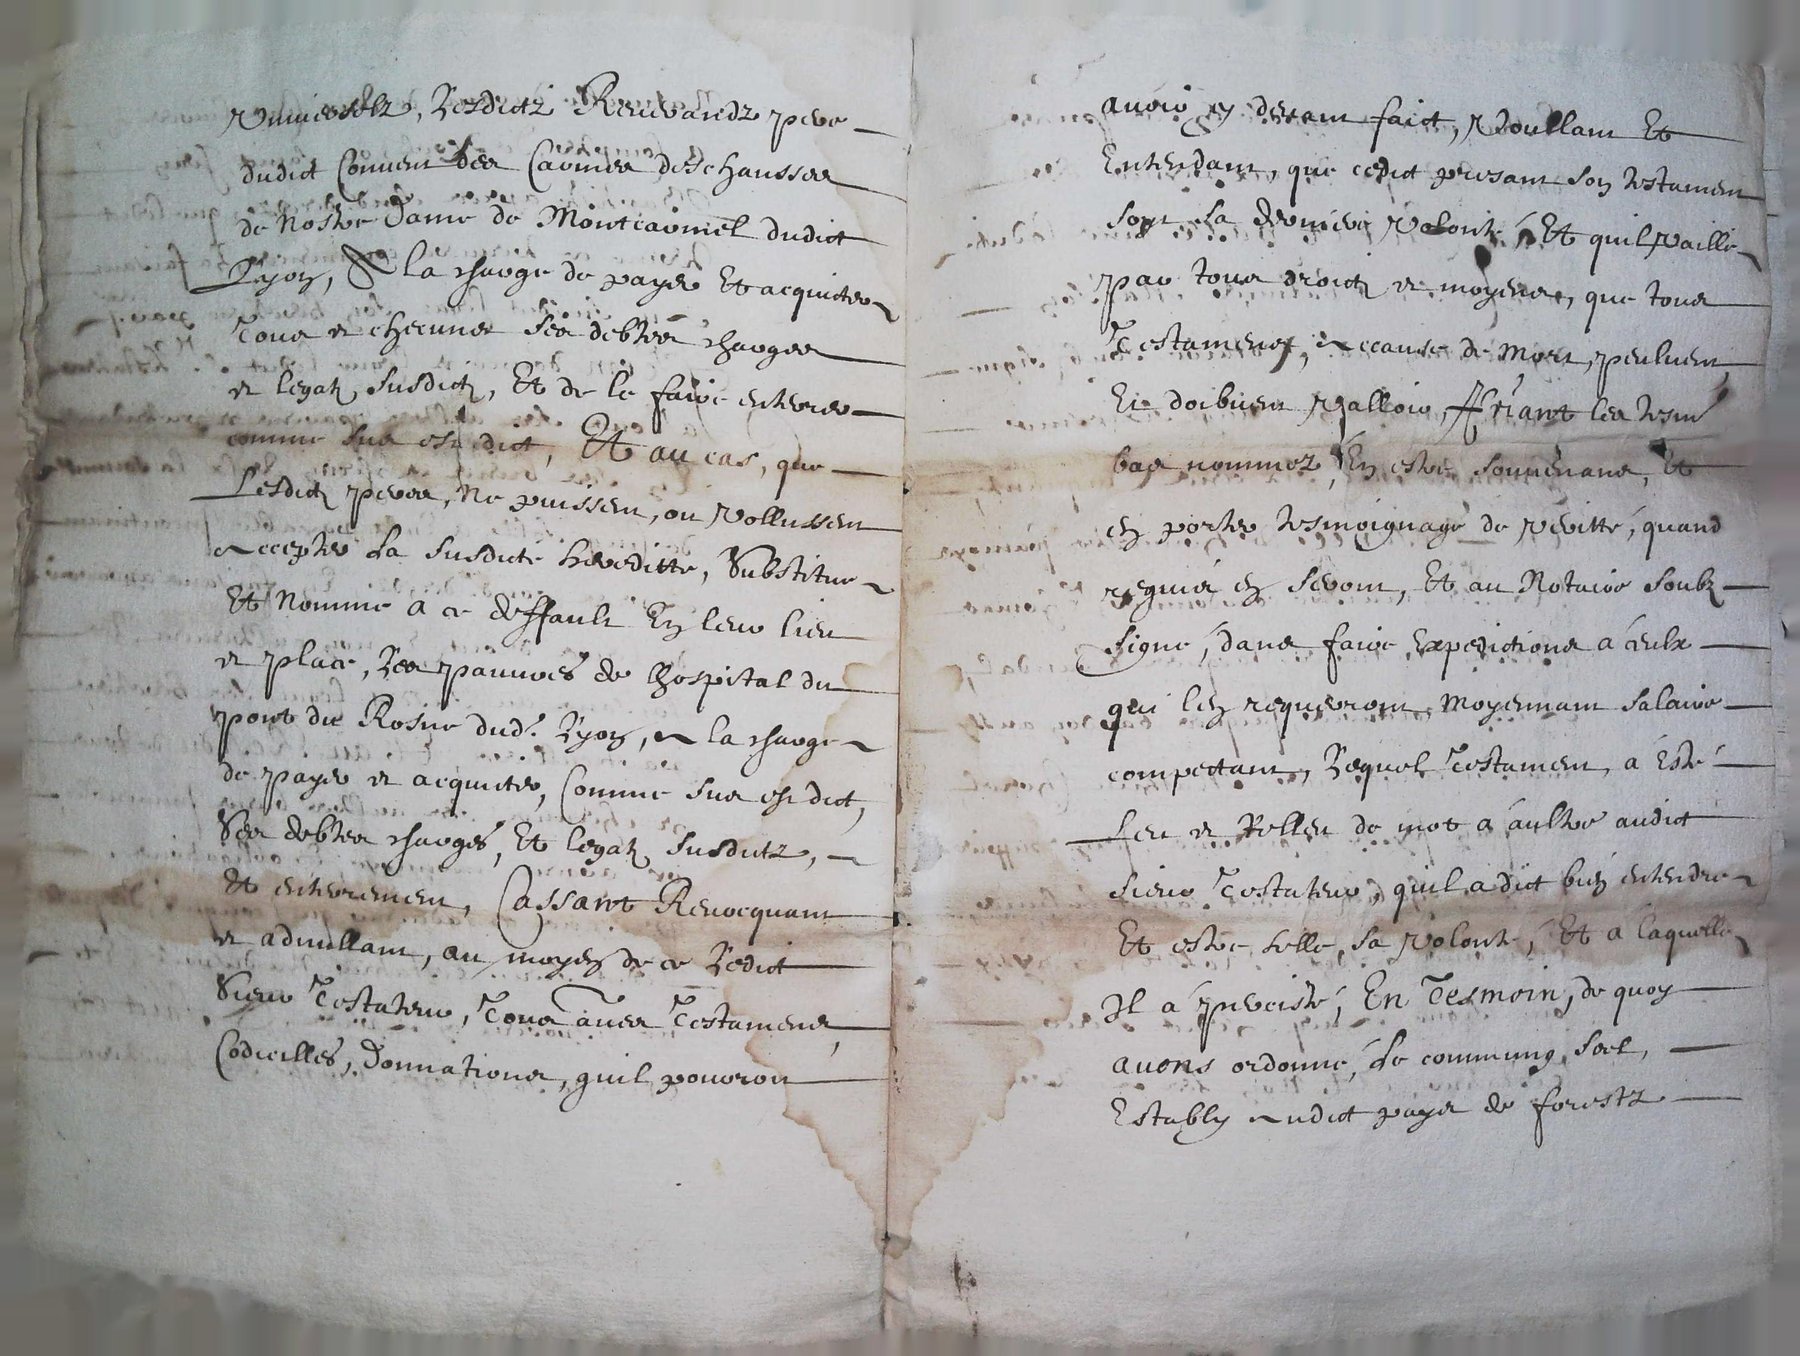 Universelz, Lesdictz Reverandz pere
dudict Convent des Carmes deschausses
de Nostre Dame de Montcarmel dudict
Lyon, A la charge de payer Et acquicter
Tous et checuns ses debtes charges
et legatz susdictz, Et de le faire enterrer
comme sus est dict, Et au cas, que
Lesdictz peres, ne puissent, ou vollussent
accepter la susdicte hereditte, Substitue
Et nomme a ce deffault En leur lieu
et place, Les pauvres de lhospital du
pont du Rosne dud. Lyon, a la charge
de payer et acquicter, Comme sus est dict,
Ses debtes charges, Et legatz susdictz,
Et enterrement, Cassant Revocquant
et adnullant, au moyen de ce Ledict
Sieur Testateur, Tous aues Testamens,
Codicilles, Donnations, quil pouroit
avoir cy devant faict, Voullant Et
Entendant, que cedict presant son testament
soyt sa derniere volonte, Et quil vaille
par tous droictz et moyens, que tous
Testamens, a cause de mort, peulvent
Et doibvent valloir, Priant les tesm
bas nommez, En estre souvenans, Et
en porter tesmoignage de veritte, quand
requis en seront, Et au Notaire soubz
signe, dans faire expedictions a ceulx
qui len requeront moyennant salaire
compettant, Lequel Testament, a esté
Leu et Relleu de mot a aultre audict
sieur Testateur, quil a dict bien entendre
Et estre telle, sa volonte, Et a laquelle
Il a percisté, En Tesmoin, de quoy
avons ordonné, le commung seel,
Estably audict pays de forestz